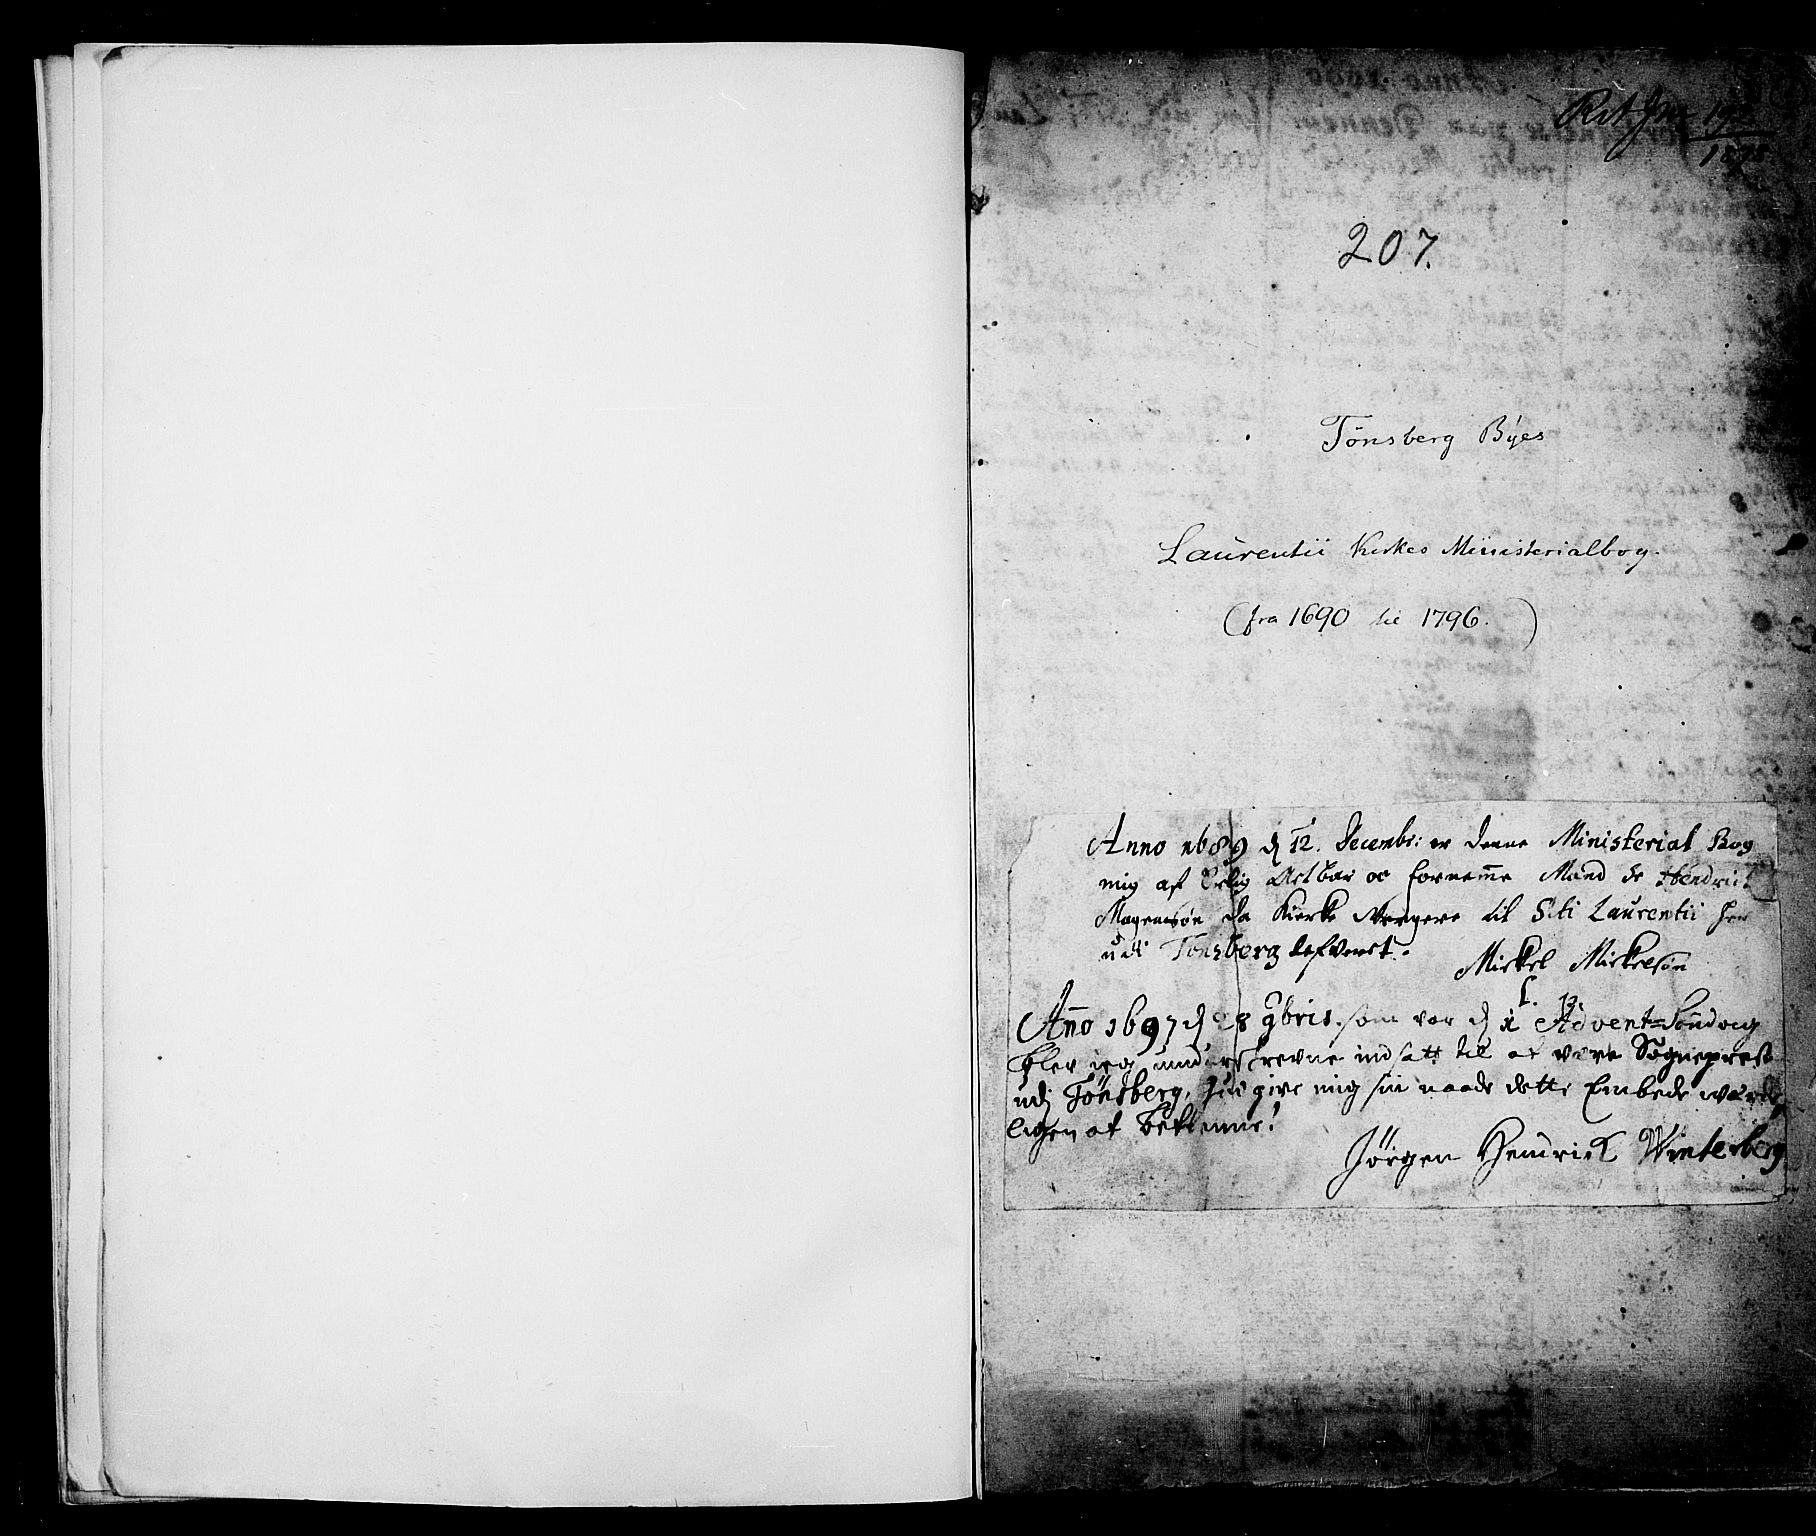 207.
Tönsberg Byes
Laurentii Kirkes Ministerialbog.
(fra 1690 til 1796.)
Anno 1689 d 12. Decembr: er denne Ministerial Bog
mig af Erlig Actbar oc fornemme Mand Sr Hendrich
Mogensøn da Kierke Vergere til Scti Laurentii her
udi Tønsberg lefveret.
Mickel Mickelsøn
Anno 1697 d 28 9bris. som var d 1 Advent=Söndag
blev ieg underskrevne indsatt til at være Sogneprest
udj Tönsberg, Gud give mig sin naade dette Embede værde
ligen at betienne!
Jörgen Hendrick Winterberg